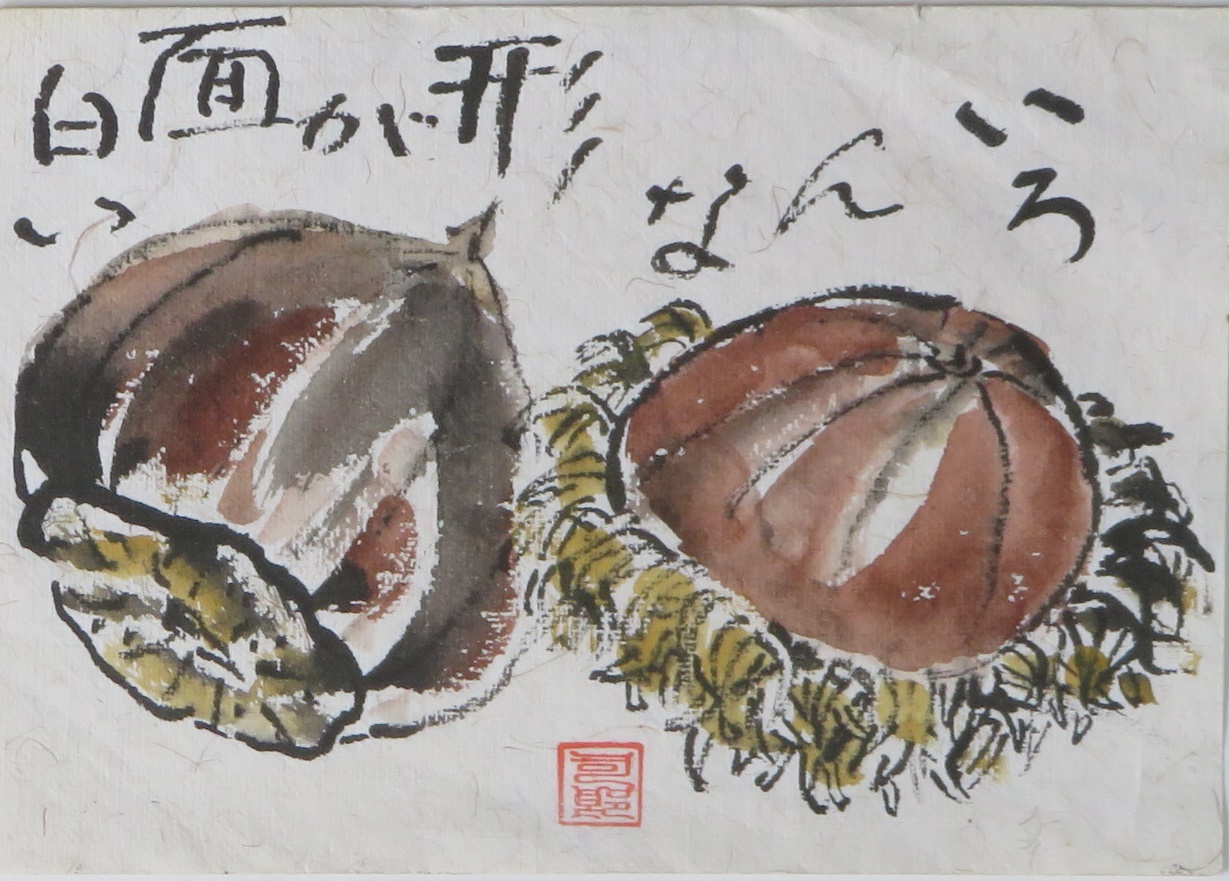 いろ
んな
形が面白い